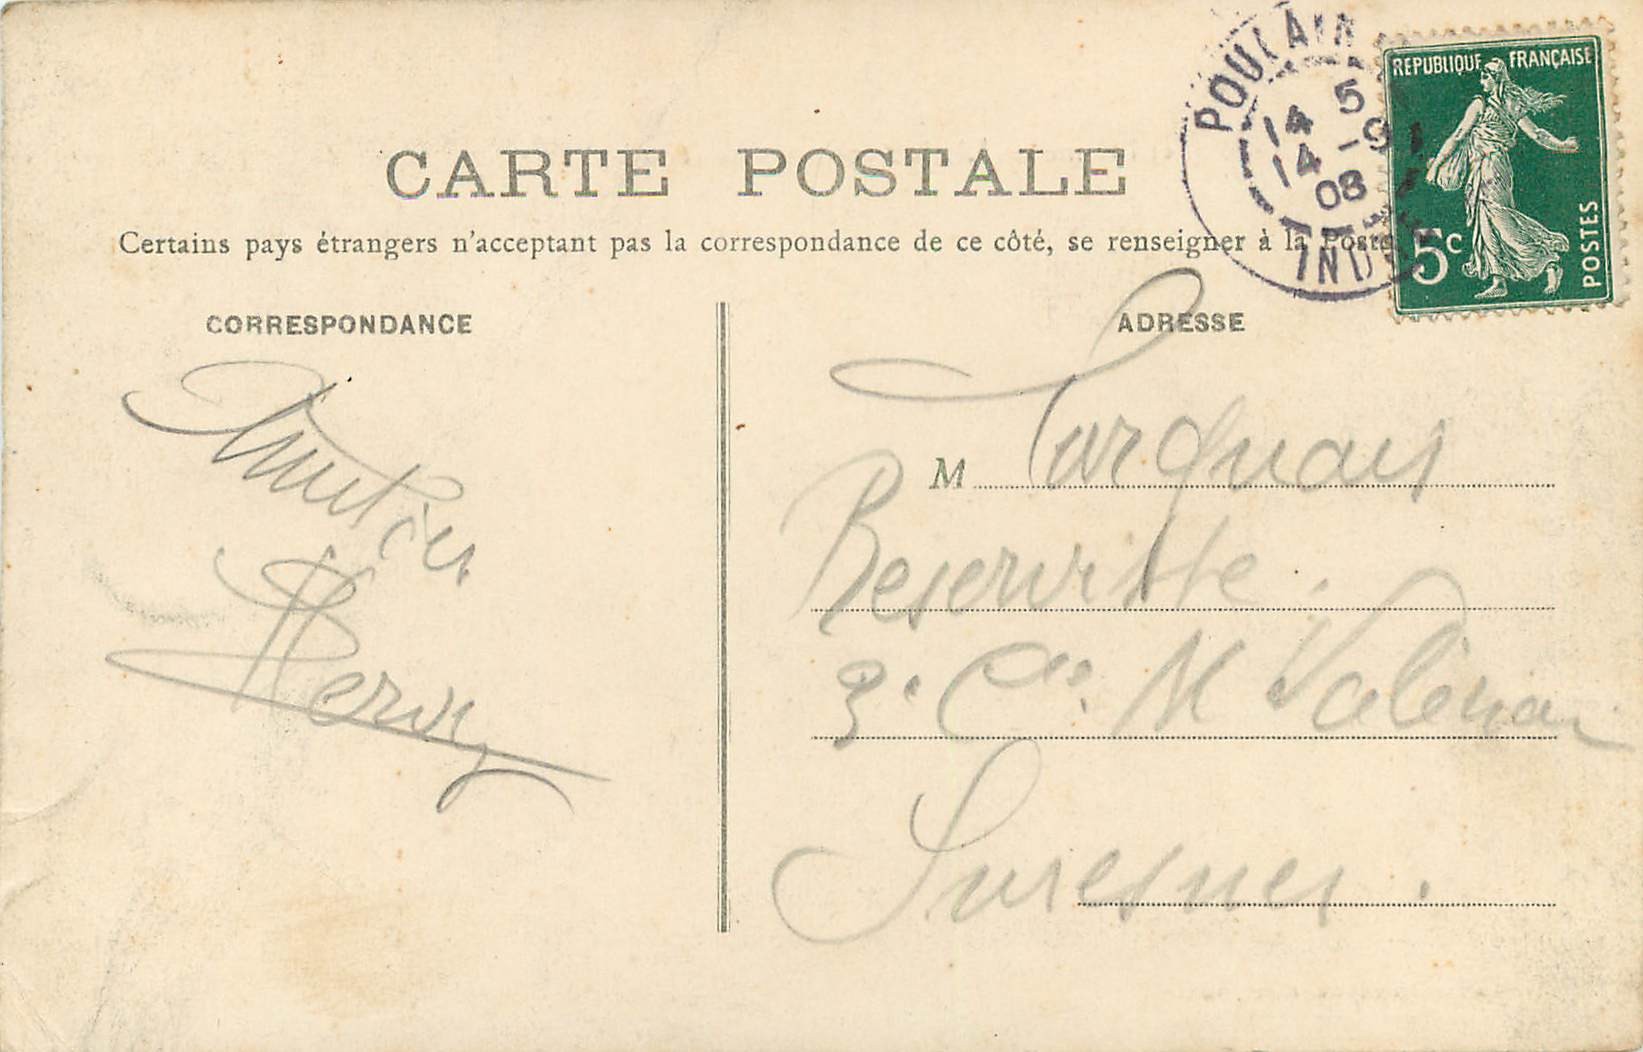 CARTE POSTALE
Certains pays étrangers n'acceptant pas la correspondance de ce côté, se renseigner à la Poste
CORRESPONDANCE
Amitiés
Hervy
ADRESSE
M Turquais
Reserviste.
3e Cie M Valérien
Suresnes.
POULAIN
14 5
14 -9
08
INDRE
REPUBLIQUE FRANÇAISE
5c
POSTES